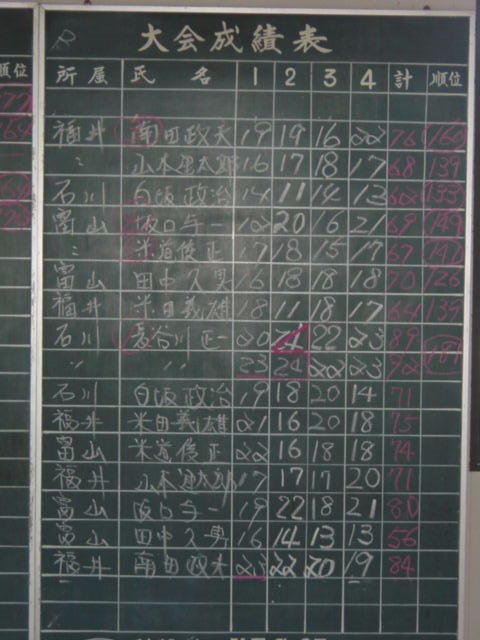 順位
大会成績表
所属 氏名 1 2 3 4 計 順位
福井 南田政夫 19 19 16 22 76 160
〃 山本健太郎 16 17 18 17 68 139
石川 白坂政治 14 11 14 13 133
富山 坂口与一 20 16 21 149
〃 米道俊正 17 18 15 17 67 141
富山 田中久男 16 18 18 18 70 126
福井 米田義雄 18 11 18 17 64 139
石川 長谷川正一 20 24 22 23 89
〃 〃 23 24 22 23 92 181
石川 白坂政治 19 18 20 14 71
福井 米田義雄 21 16 20 18 75
富山 米道俊正 22 16 18 18 74
福井 山本健太郎 17 17 17 20 71
富山 坂口与一 19 22 18 21 80
富山 田中久男 16 14 13 13 56
福井 南田政夫 23 22 20 19 84